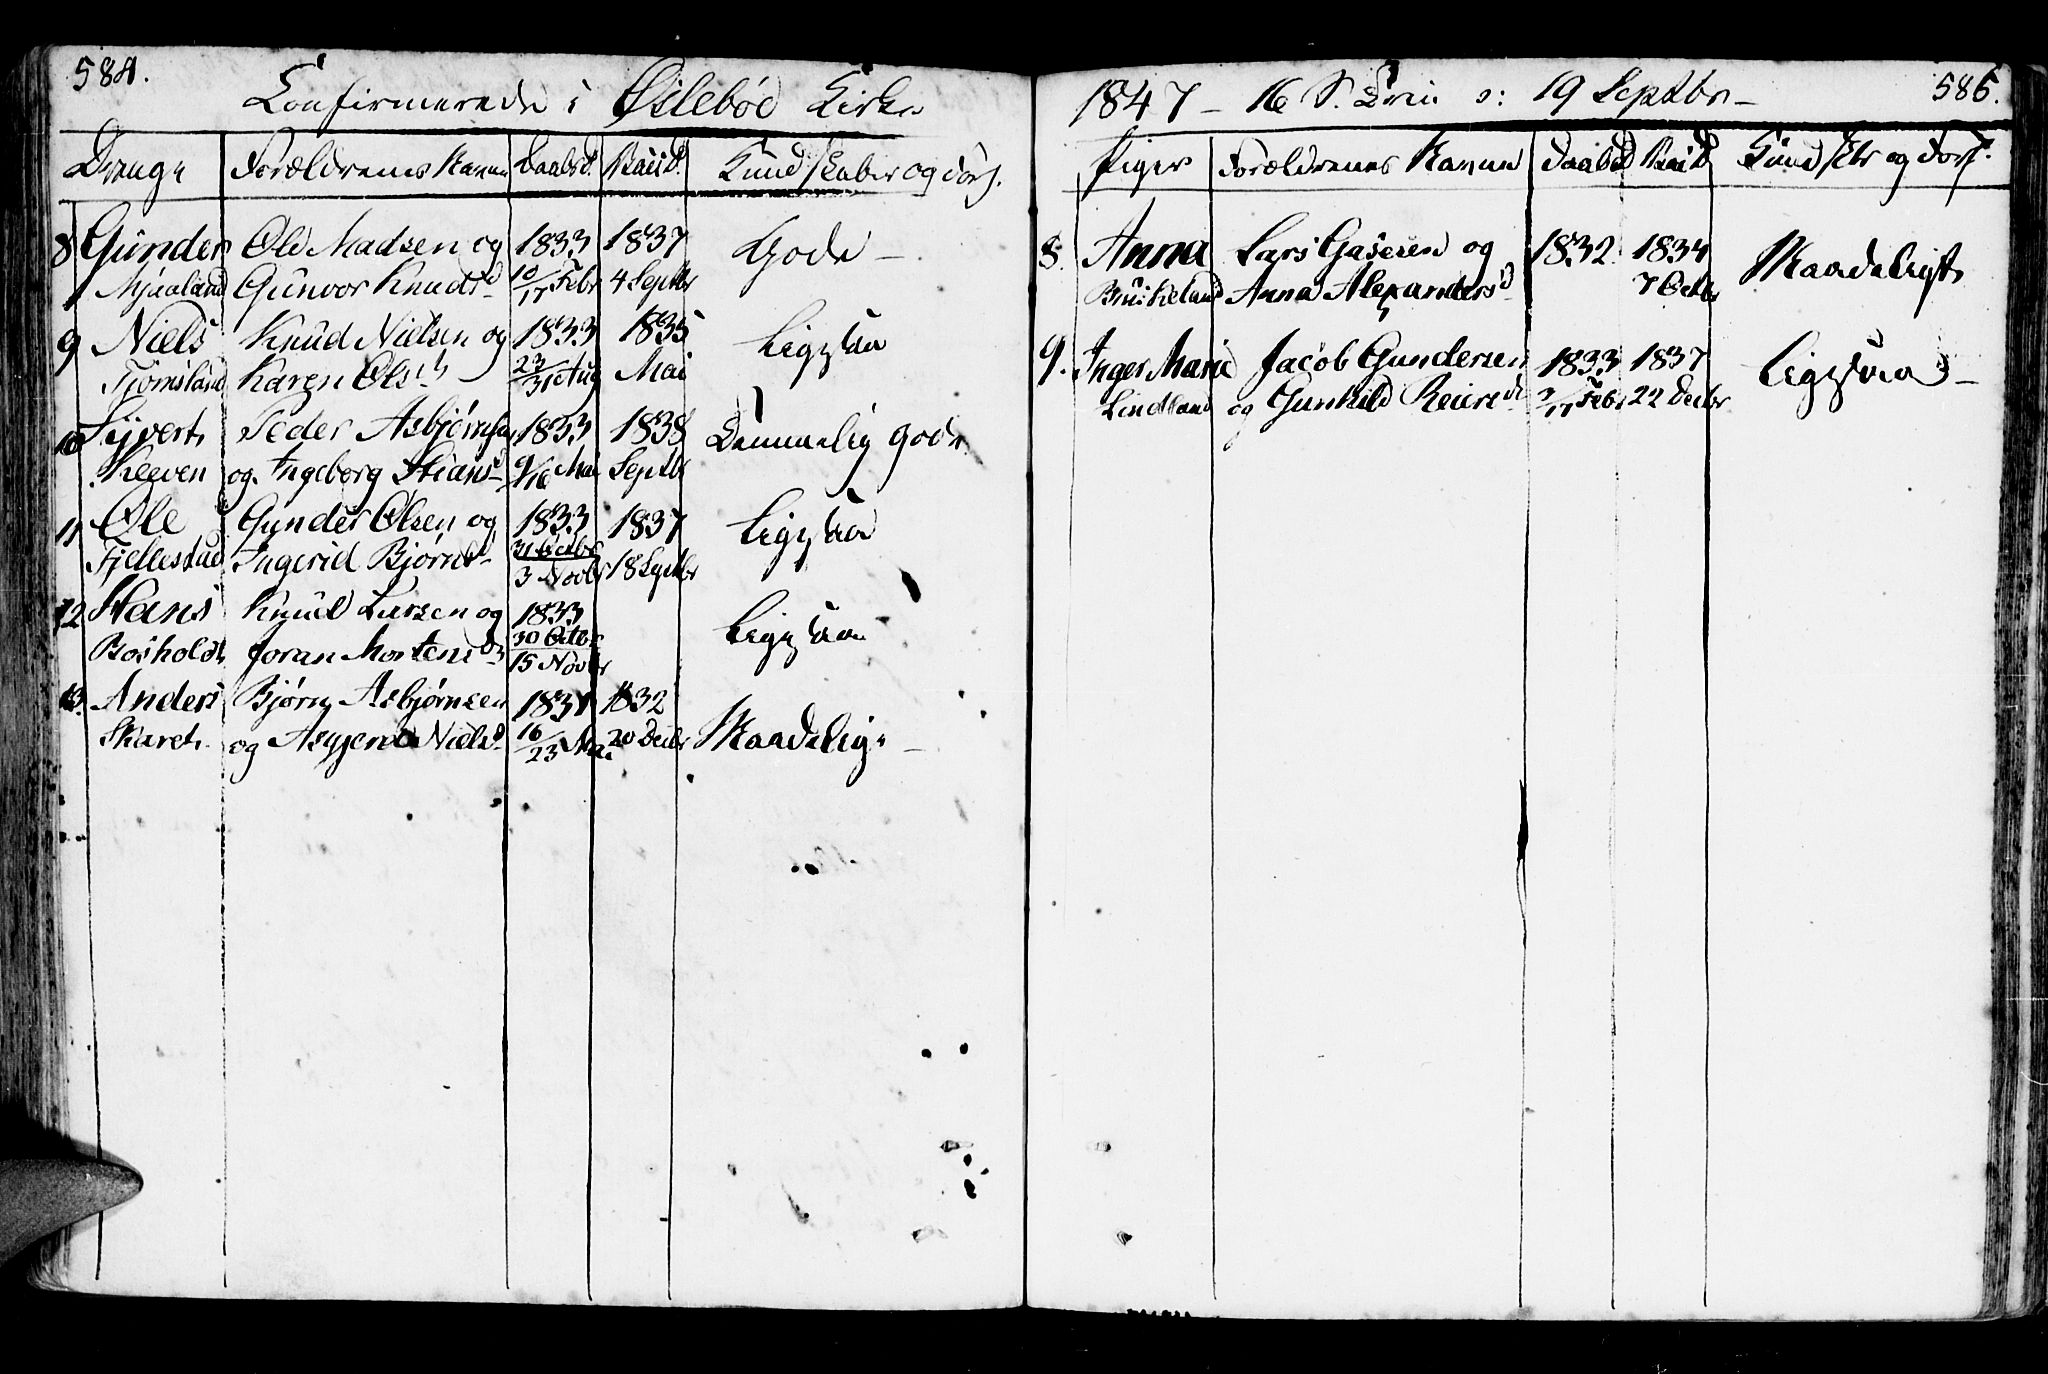 584.
Confirmerede i Øslebøe Kirke
Drenge Forældrenes Navne Daabsd. Vacc.d. Kundskaber og Forh.
8 Gunder Ole Madsen og 1833 1837 Gode –
Mjualand Gunvor Knudsd. 10/17 Febr 4 Septbr
9 Niels Knud Nielsen og 1833 1835 Ligesaa
Tjomsland Karen Olsd. 23/31 Aug Mai
10 Sivert Peder Asbjørnsen 1833 1838 Temmelig gode
Kleven og Ingeborg Stiansd. 9/16 Mai Septbr
11 Ole Gunder Olsen og 1833 1837 Ligesaa
Fjellestad Ingerid Bjørnsd. 31 Octbr/3 Novbr 18 Septbr
12 Hans Knud Larsen og 1833 Ligesaa
Bosholdt Joran Mortensd. 30 Octbr/15 Novbr
13. Anders Bjørn Asbjørnsen 1831 1832 Maadelige –
Skaret og Asgjerd Nielsd. 16/23 Mai 20 Decbr
1847 – 16 S. Trin ɔ: 19 Septbr – 585.
Piger Forældrenes Navne Daabsd Vacc.d Kundsk. og Forh.
8. Anna Lars Gasesen og 1832. 1834 Maadeligt
Anna Alexandersd. 7 Octbr
9. Inger Marie Jacob Gundersen 1833 1837 Ligesaa –
Lindland og Gunhild Reiersd. Febr 22 Decbr